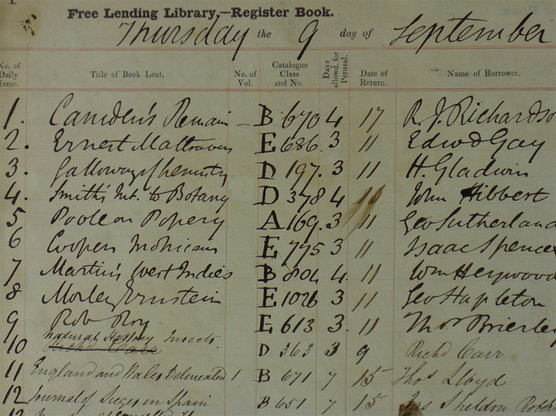 Free Lending Library,—Register Book.
Thursday the 9 day of September
No. of Daily Issue. Title of Book Lent. No. of Vol. Catalogue Class and No. Days allowd. for Perusal. Date of Return. Name of Borrower.
1. Camden's Remain B 670 4 17 R. J. Richardso
2. Ernest Maltravers E 686 3 11 Edwd Gay
3. Galloways Chemistry D 197. 3 11 H. Gladwin
4. Smith's Int. to Botany D 378 4 John Hibbert
5 Poole on Popery A 169. 3 11 Geo Sutherland
6 Coopers Mohicans E 775 3 11 Isaac Spencer
7 Martin's West Indies B 804 4. 11 Wm Heywood
8 Morley Ernstein E 1026 3 11 Geo Hapleton
9 Rob Roy E 613 3. 11 Thos Brierley
10 Natural History Insects D 363 3 9 Richd Carr
11 England and Wales Delineated 1 B 671 7 15 Thos Lloyd
12 Journal of Sieges in Spain B 651 7 15 Jas Sheldon